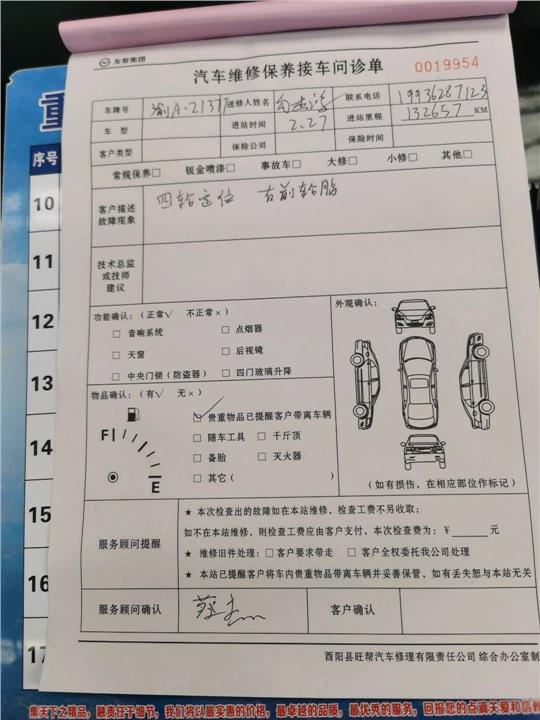 友帮集团
汽车维修保养接车问诊单 0019954
车牌号 渝A·2137 送修人姓名 联系电话 19936287123
车 型 进站时间 2.27 进站里程 132657 KM
客户类型 保险公司 保险时间
常规保养□ 钣金喷漆□ 事故车□ 大修□ 小修□ 其他□
客户描述
故障现象
四轮定位 右前轮胎
技术总监
或技师
建议
功能确认：（正常√ 不正常×）
□ 音响系统 □ 点烟器
□ 天窗 □ 后视镜
□ 中央门锁（防盗器） □ 四门玻璃升降
外观确认：
（如有损伤，在相应部位作标记）
物品确认：（有√ 无×）
☑ 贵重物品已提醒客户带离车辆
□ 随车工具 □ 千斤顶
□ 备胎 □ 灭火器
□ 其它（ ）
F
E
服务顾问提醒
★ 本次检查出的故障如在本站维修，检查工费不另收取；
如不在本站维修，则检查工费应由客户支付，本次检查费为：￥______元
★ 维修旧件处理：□ 客户要求带走 □ 客户全权委托我公司处理
★ 本站已提醒客户将车内贵重物品带离车辆并妥善保管，如有丢失恕与本站无关
服务顾问确认 客户确认
酉阳县旺帮汽车修理有限责任公司 综合办公室制
重
序号
10
11
12
13
14
15
16
17
集天下之精品，融责任于细节，我们将以最实惠的价格，最卓越的品质，最优秀的服务，回报您的点滴关爱和信